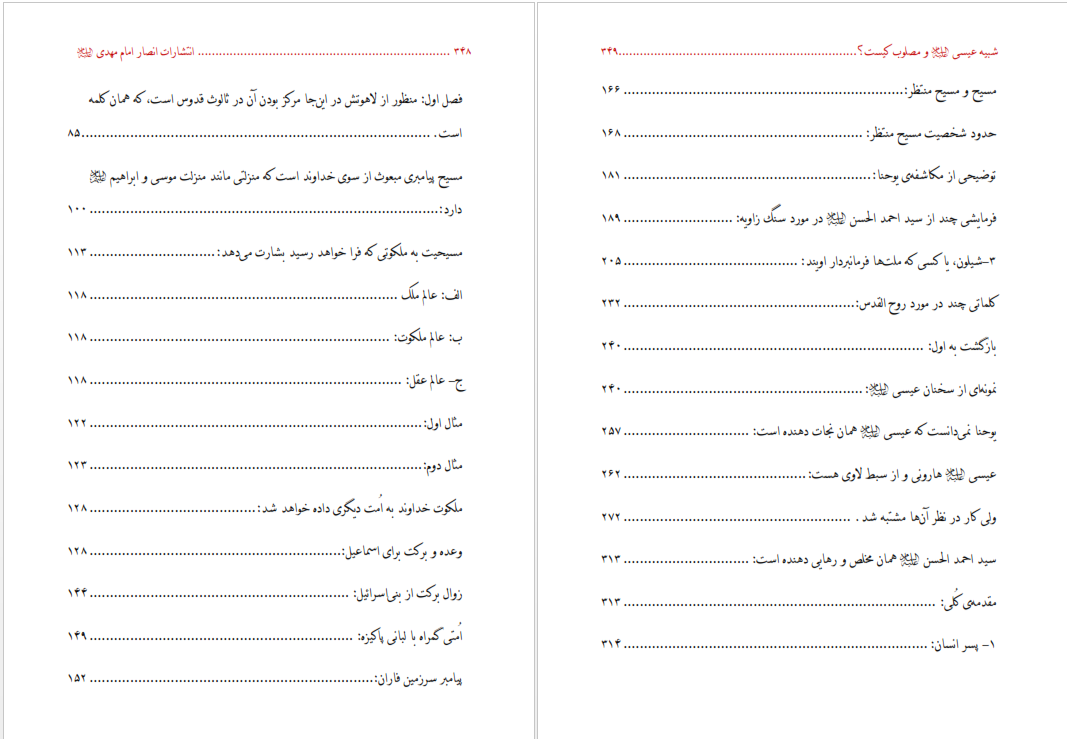 ۳۴۸ ........................ انتشارات انصار امام مهدی علیه السلام
فصل اول: منظور از لاهوتش در این‌جا مرکز بودن آن در ثالوث قدوس است، که همان کلمه
است. ........................ ۸۵
مسیح پیامبری مبعوث از سوی خداوند است که منزلتی مانند منزلت موسی و ابراهیم علیه السلام
دارد: ........................ ۱۰۰
مسیحیت به ملکوتی که فرا خواهد رسید بشارت می‌دهد: ........................ ۱۱۳
الف: عالم مُلک ........................ ۱۱۸
ب: عالم ملکوت: ........................ ۱۱۸
ج- عالم عقل: ........................ ۱۱۸
مثال اول: ........................ ۱۲۲
مثال دوم: ........................ ۱۲۳
ملکوت خداوند به اُمت دیگری داده خواهد شد: ........................ ۱۲۸
وعده و برکت برای اسماعیل: ........................ ۱۲۸
زوال برکت از بنی‌اسرائیل: ........................ ۱۴۴
اُمتی گمراه با لبانی پاکیزه: ........................ ۱۴۹
پیامبر سرزمین فاران: ........................ ۱۵۲
شبیه عیسی علیه السلام و مصلوب کیست؟ ........................ ۳۴۹
مسیح و مسیح منتظر: ........................ ۱۶۶
حدود شخصیت مسیح منتظر: ........................ ۱۶۸
توضیحی از مکاشفه‌ی یوحنا: ........................ ۱۸۱
فرمایشی چند از سید احمد الحسن علیه السلام در مورد سنگ زاویه: ........................ ۱۸۹
۳-شیلون، یا کسی که ملت‌ها فرمانبردار اویند: ........................ ۲۰۵
کلماتی چند در مورد روح القدس: ........................ ۲۳۲
بازگشت به اول: ........................ ۲۴۰
نمونه‌ای از سخنان عیسی علیه السلام: ........................ ۲۴۰
یوحنا نمی‌دانست که عیسی علیه السلام همان نجات دهنده است: ........................ ۲۵۷
عیسی علیه السلام هارونی و از سبط لاوی هست: ........................ ۲۶۲
ولی کار در نظر آن‌ها مشتبه شد. ........................ ۲۷۲
سید احمد الحسن علیه السلام همان مخلص و رهایی دهنده است: ........................ ۳۱۳
مقدمه‌ی کُلی: ........................ ۳۱۳
۱- پسر انسان: ........................ ۳۱۴